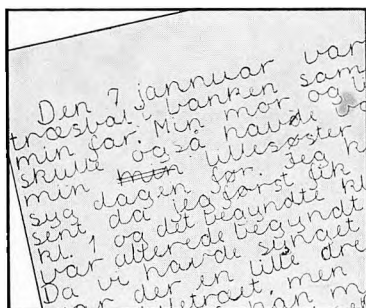 Den 7 jannuar var
træsbal i banken sam
min far. Min mor og
skulle også havde
min min lillesøster
syg dagen før. Jeg
sent da jeg først fik
kl. 1 og det begyndte kl
var allerede begyndt
Da vi havde synget
var der en lille dre
juletræet, men